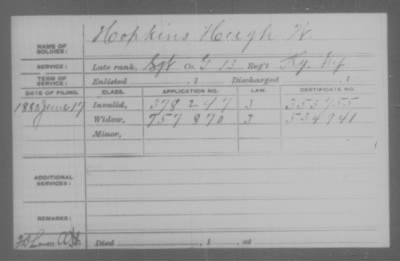 NAME OF SOLDIER: Hopkins Hugh W.
SERVICE: Late rank, Sgt Co. G 13 Reg't Ky. Inf
TERM OF SERVICE: Enlisted , 1 Discharged , 1
DATE OF FILING. CLASS. APPLICATION NO. LAW. CERTIFICATE NO.
1880 June 17 Invalid, 378247 3 353755
Widow, 757870 3 534941
Minor,
ADDITIONAL SERVICES:
REMARKS:
Died , 1 , at